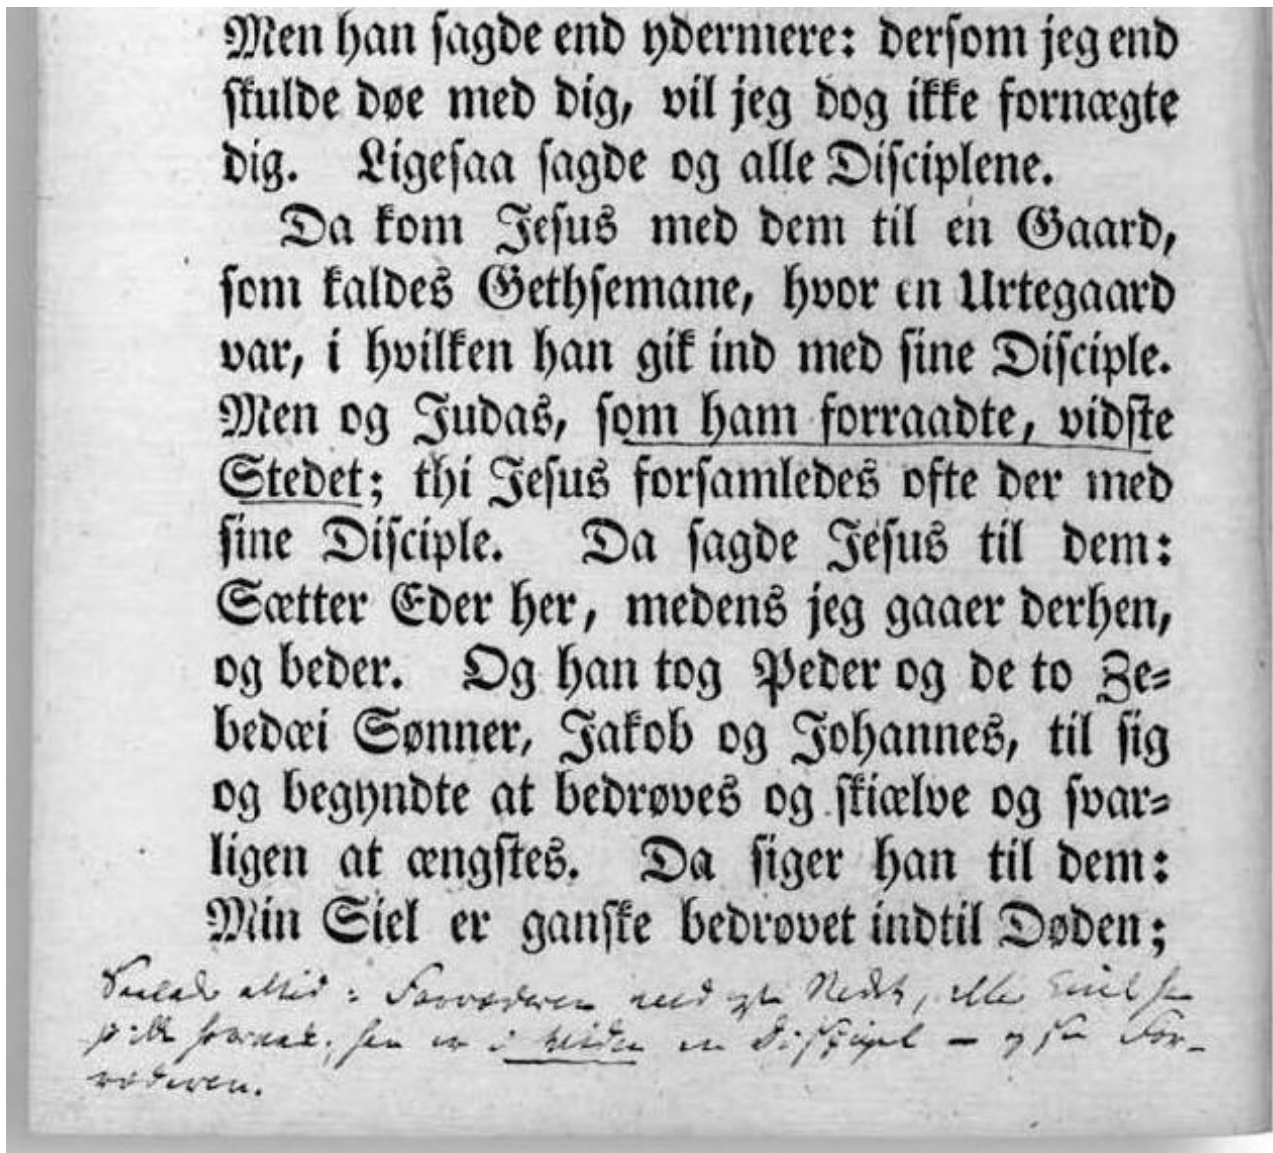 Men han sagde end ydermere: dersom jeg end
skulde døe med dig, vil jeg dog ikke fornægte
dig. Ligesaa sagde og alle Disciplene.
Da kom Jesus med dem til en Gaard,
som kaldes Gethsemane, hvor en Urtegaard
var, i hvilken han gik ind med sine Disciple.
Men og Judas, som ham forraadte, vidste
Stedet; thi Jesus forsamledes ofte der med
sine Disciple. Da sagde Jesus til dem:
Sætter Eder her, medens jeg gaaer derhen,
og beder. Og han tog Peder og de to Ze-
bedæi Sønner, Jakob og Johannes, til sig
og begyndte at bedrøves og skiælve og svar-
ligen at ængstes. Da siger han til dem:
Min Siel er ganske bedrøvet indtil Døden;
Saaledes altid: Forræderen Stedet, eller
han er i Viden en Discipel – og saa For-
ræderen.